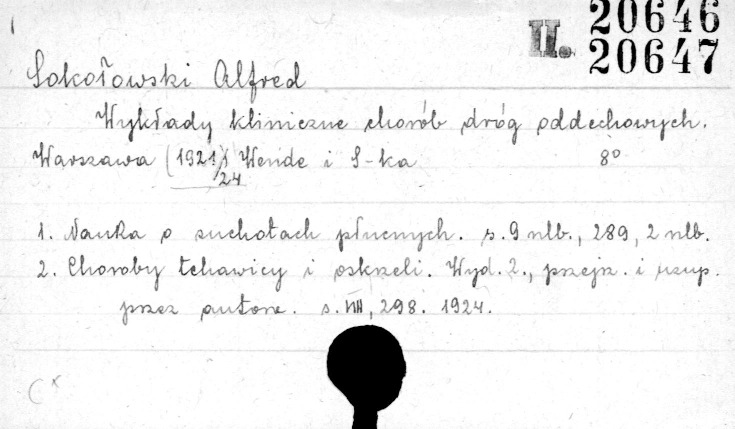 II. 20646
20647
Sokołowski Alfred
Wykłady kliniczne chorób dróg oddechowych.
Warszawa (1921/24) Wende i S-ka 8°
1. Nauka o suchotach płucnych. s. 9 nlb., 289, 2 nlb.
2. Choroby tchawicy i oskrzeli. Wyd. 2., przejrz. i uzup.
przez autora. s. VIII, 298. 1924.
C x